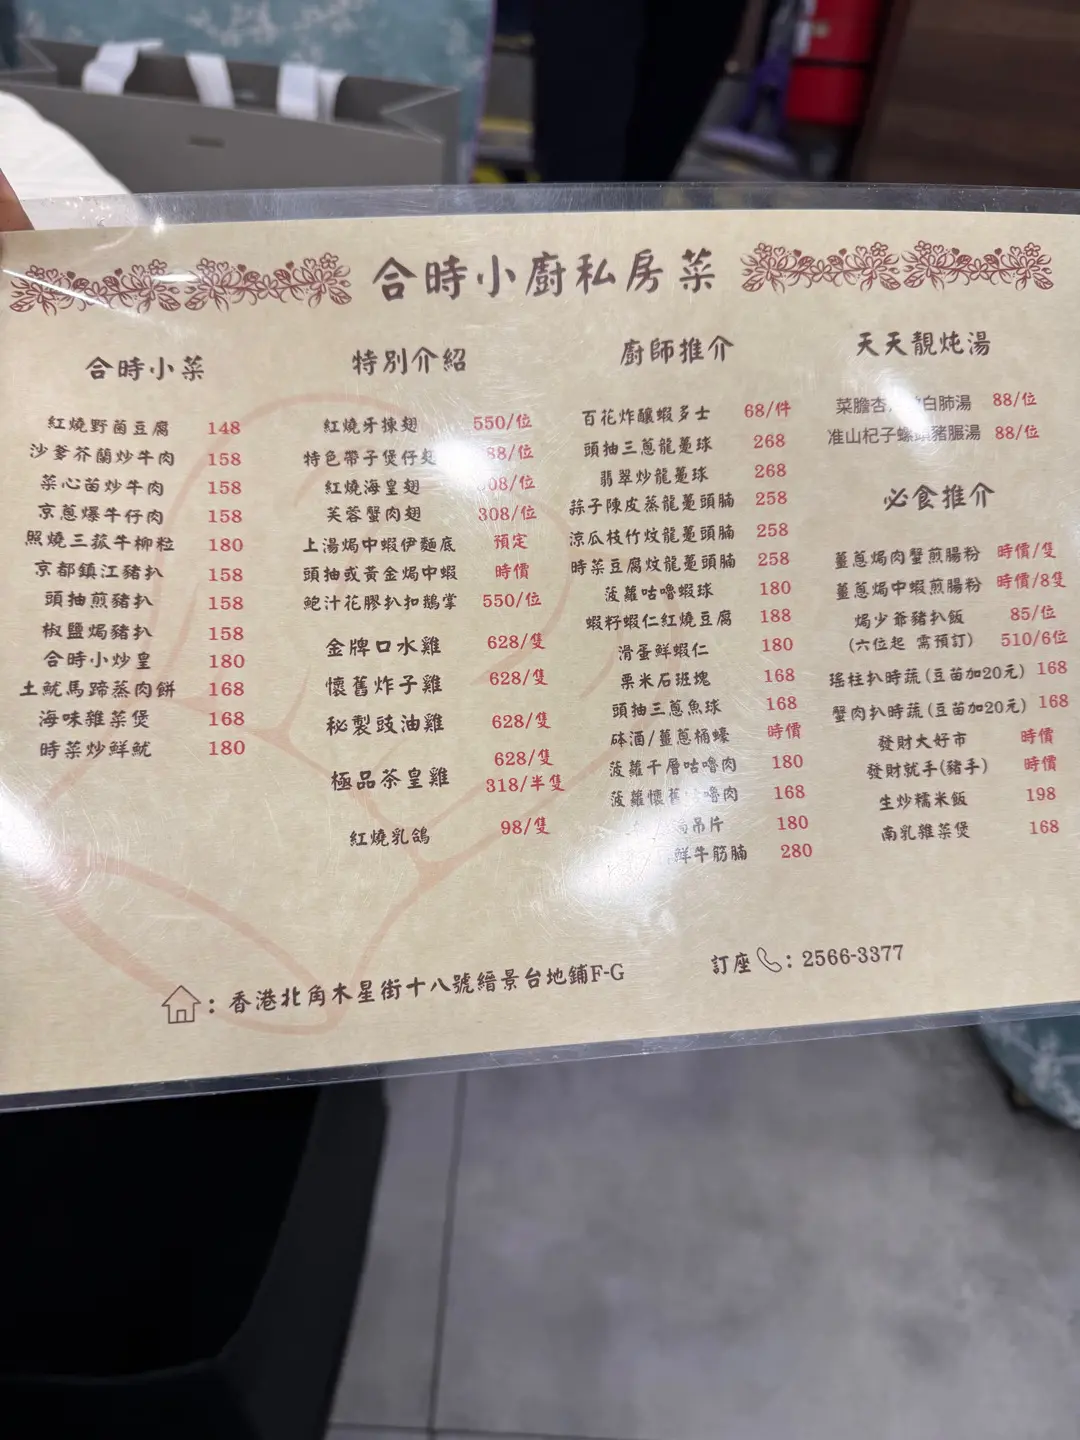 合時小廚私房菜
合時小菜
紅燒野菌豆腐 148
沙爹芥蘭炒牛肉 158
菜心苗炒牛肉 158
京蔥爆牛仔肉 158
照燒三菇牛柳粒 180
京都鎮江豬扒 158
頭抽煎豬扒 158
椒鹽焗豬扒 158
合時小炒皇 180
土魷馬蹄蒸肉餅 168
海味雜菜煲 168
時菜炒鮮魷 180
特別介紹
紅燒牙揀翅 550/位
特色帶子煲仔翅 88/位
紅燒海皇翅 08/位
芙蓉蟹肉翅 308/位
上湯焗中蝦伊麵底 預定
頭抽或黃金焗中蝦 時價
鮑汁花膠扒扣鵝掌 550/位
金牌口水雞 628/隻
懷舊炸子雞 628/隻
秘製豉油雞 628/隻
極品茶皇雞 628/隻
318/半隻
紅燒乳鴿 98/隻
廚師推介
百花炸釀蝦多士 68/件
頭抽三蔥龍躉球 268
翡翠炒龍躉球 268
蒜子陳皮蒸龍躉頭腩 258
涼瓜枝竹炆龍躉頭腩 258
時菜豆腐炆龍躉頭腩 258
菠蘿咕嚕蝦球 180
蝦籽蝦仁紅燒豆腐 188
滑蛋鮮蝦仁 180
粟米石班塊 168
頭抽三蔥魚球 168
砵酒/薑蔥桶蠔 時價
菠蘿千層咕嚕肉 180
菠蘿懷舊咕嚕肉 168
吊片 180
鮮牛筋腩 280
天天靚炖湯
菜膽杏 白肺湯 88/位
准山杞子螺頭豬𦟌湯 88/位
必食推介
薑蔥焗肉蟹煎腸粉 時價/隻
薑蔥焗中蝦煎腸粉 時價/8隻
焗少爺豬扒飯 85/位
(六位起 需預訂) 510/6位
瑤柱扒時蔬(豆苗加20元) 168
蟹肉扒時蔬(豆苗加20元) 168
發財大好市 時價
發財就手(豬手) 時價
生炒糯米飯 198
南乳雜菜煲 168
：香港北角木星街十八號縉景台地鋪F-G
訂座：2566-3377